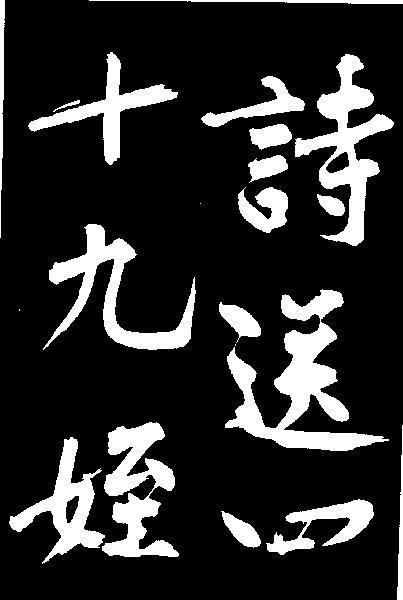 詩送四
十九姪